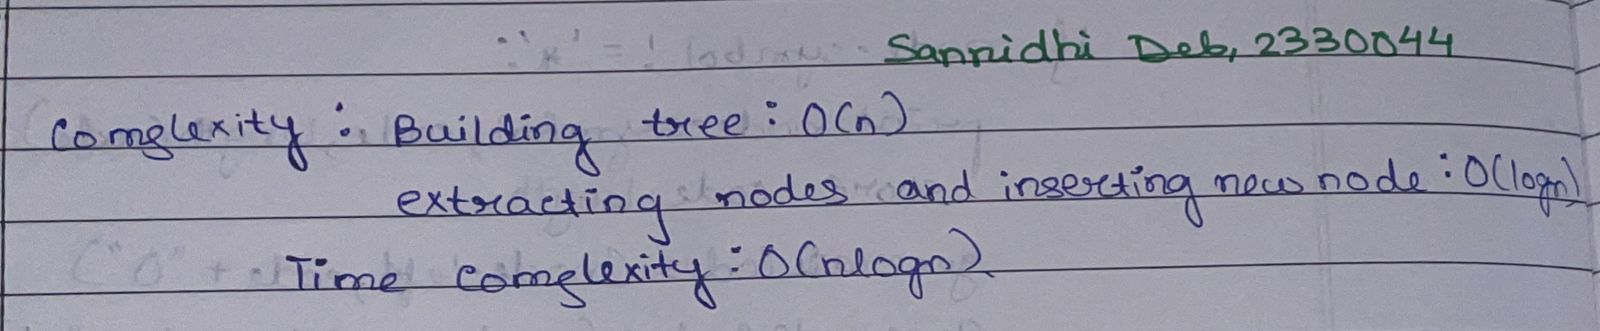 Sannidhi Deb, 2330044
Complexity : Building tree : O(n)
extracting nodes and inserting new node : O(logn)
Time complexity : O(nlogn)